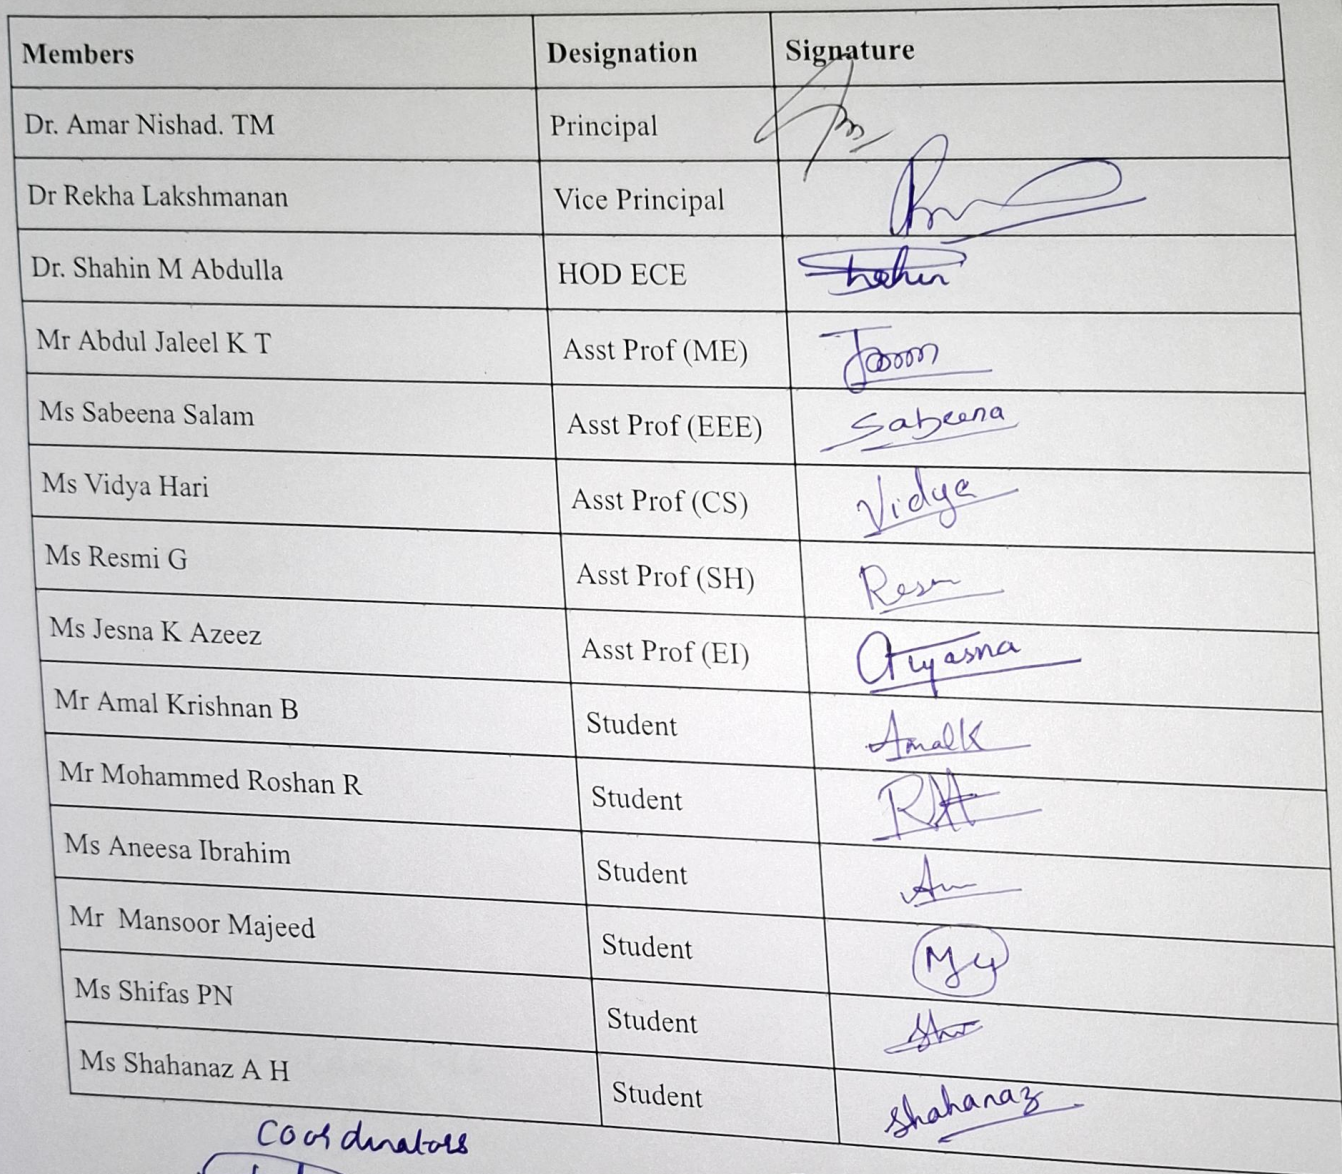 Members Designation Signature
Dr. Amar Nishad. TM Principal
Dr Rekha Lakshmanan Vice Principal
Dr. Shahin M Abdulla HOD ECE Shahin
Mr Abdul Jaleel K T Asst Prof (ME)
Ms Sabeena Salam Asst Prof (EEE) Sabeena
Ms Vidya Hari Asst Prof (CS) Vidya
Ms Resmi G Asst Prof (SH)
Ms Jesna K Azeez Asst Prof (EI)
Mr Amal Krishnan B Student AmalK
Mr Mohammed Roshan R Student
Ms Aneesa Ibrahim Student
Mr Mansoor Majeed Student
Ms Shifas PN Student
Ms Shahanaz A H Student Shahanaz
Coordinators